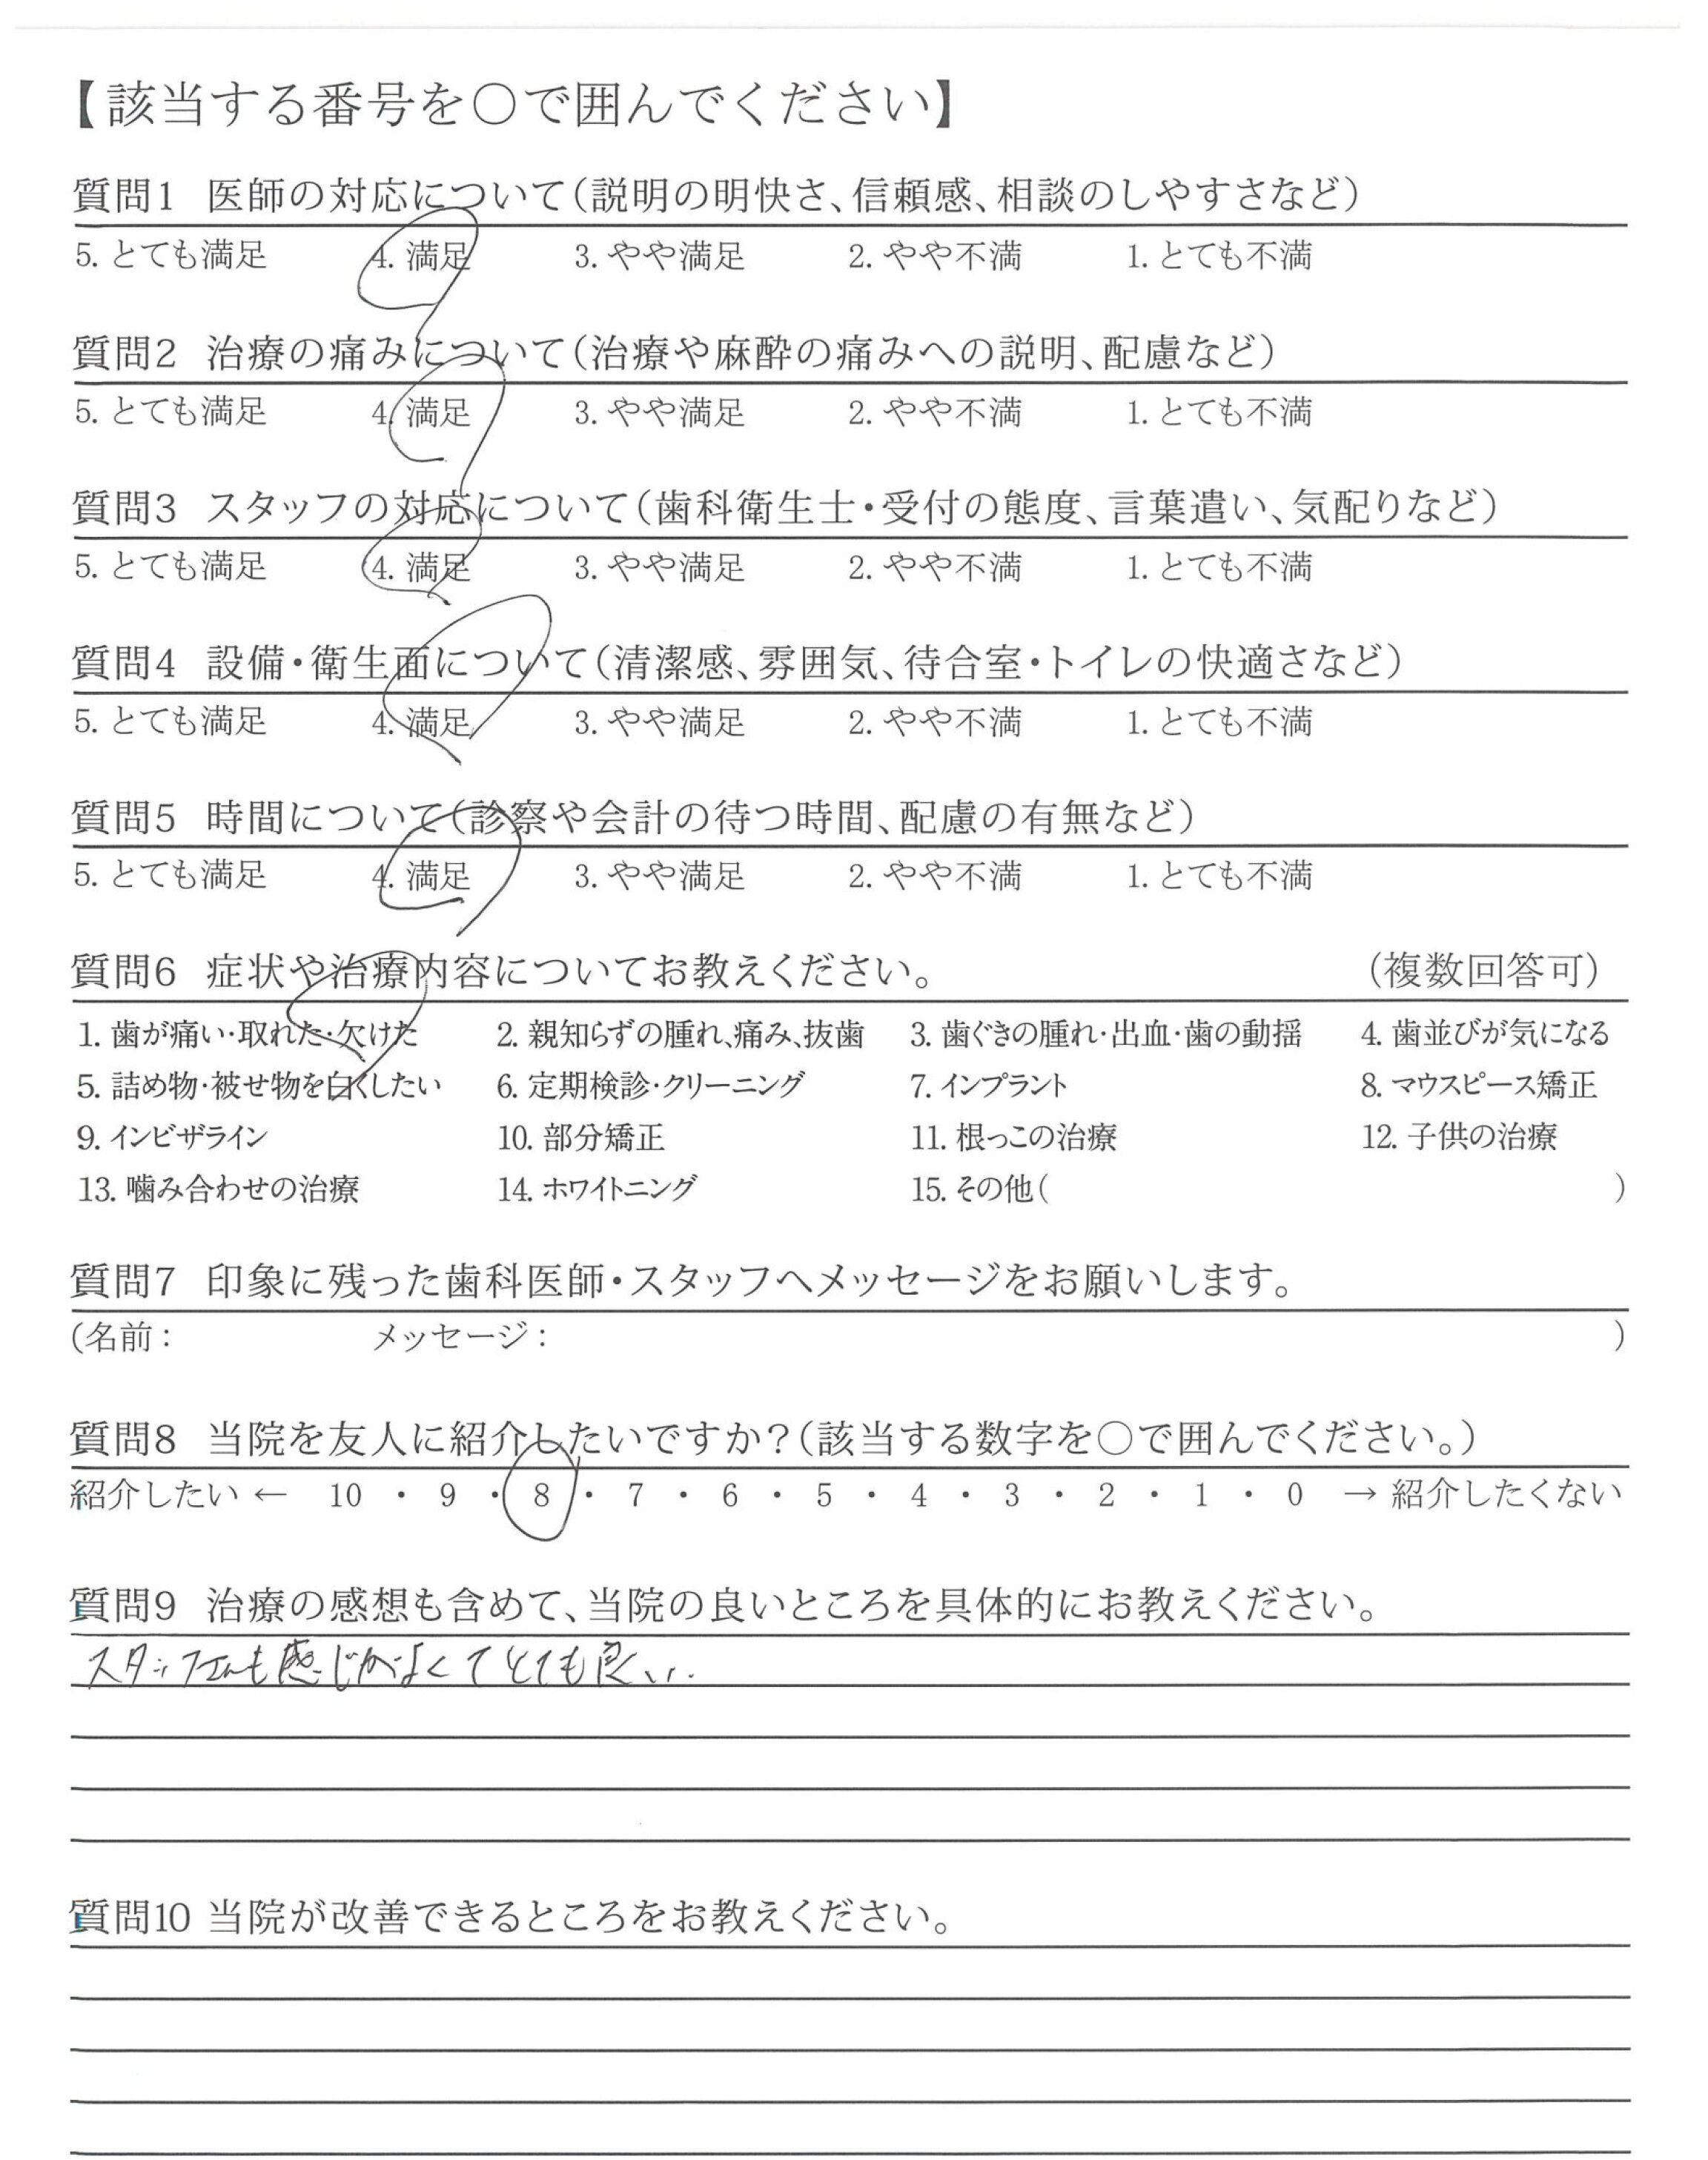 【該当する番号を○で囲んでください】
質問1 医師の対応について(説明の明快さ、信頼感、相談のしやすさなど)
5. とても満足 4. 満足 3. やや満足 2. やや不満 1. とても不満
質問2 治療の痛みについて(治療や麻酔の痛みへの説明、配慮など)
5. とても満足 4. 満足 3. やや満足 2. やや不満 1. とても不満
質問3 スタッフの対応について(歯科衛生士・受付の態度、言葉遣い、気配りなど)
5. とても満足 4. 満足 3. やや満足 2. やや不満 1. とても不満
質問4 設備・衛生面について(清潔感、雰囲気、待合室・トイレの快適さなど)
5. とても満足 4. 満足 3. やや満足 2. やや不満 1. とても不満
質問5 時間について(診察や会計の待つ時間、配慮の有無など)
5. とても満足 4. 満足 3. やや満足 2. やや不満 1. とても不満
質問6 症状や治療内容についてお教えください。 (複数回答可)
1. 歯が痛い・取れた・欠けた 2. 親知らずの腫れ、痛み、抜歯 3. 歯ぐきの腫れ・出血・歯の動揺 4. 歯並びが気になる
5. 詰め物・被せ物を白くしたい 6. 定期検診・クリーニング 7. インプラント 8. マウスピース矯正
9. インビザライン 10. 部分矯正 11. 根っこの治療 12. 子供の治療
13. 噛み合わせの治療 14. ホワイトニング 15. その他( )
質問7 印象に残った歯科医師・スタッフへメッセージをお願いします。
(名前: メッセージ: )
質問8 当院を友人に紹介したいですか?(該当する数字を○で囲んでください。)
紹介したい ← 10 ・ 9 ・ 8 ・ 7 ・ 6 ・ 5 ・ 4 ・ 3 ・ 2 ・ 1 ・ 0 → 紹介したくない
質問9 治療の感想も含めて、当院の良いところを具体的にお教えください。
スタッフ も感じがよくてとても良い.
質問10 当院が改善できるところをお教えください。